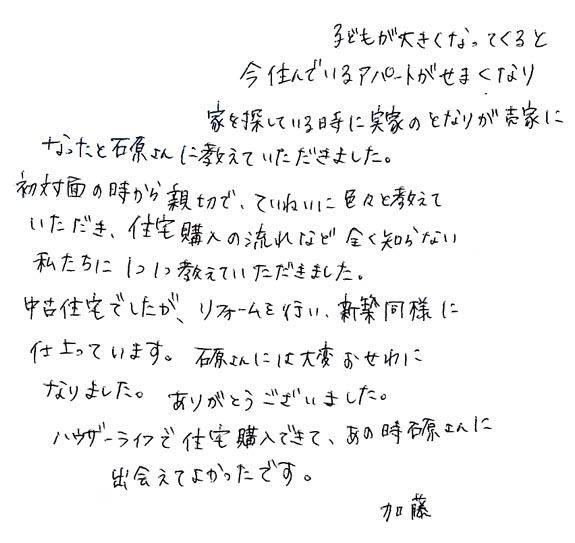 子どもが大きくなってくると
今住んでいるアパートがせまくなり
家を探している時に実家のとなりが売家に
なったと石原さんに教えていただきました。
初対面の時から親切で、ていねいに色々と教えて
いただき、住宅購入の流れなど全く知らない
私たちに1つ1つ教えていただきました。
中古住宅でしたが、リフォームを行い、新築同様に
仕上っています。石原さんには大変おせわに
なりました。ありがとうございました。
ハウザーライフで住宅購入できて、あの時石原さんに
出会えてよかったです。
加藤